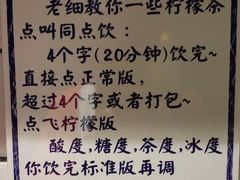 老细教你一些柠檬茶
点叫同点饮:
4个字(20分钟)饮完~
直接点正常版,
超过4个字或者打包~
点飞柠檬版
酸度,糖度,茶度,冰度
你饮完标准版再调